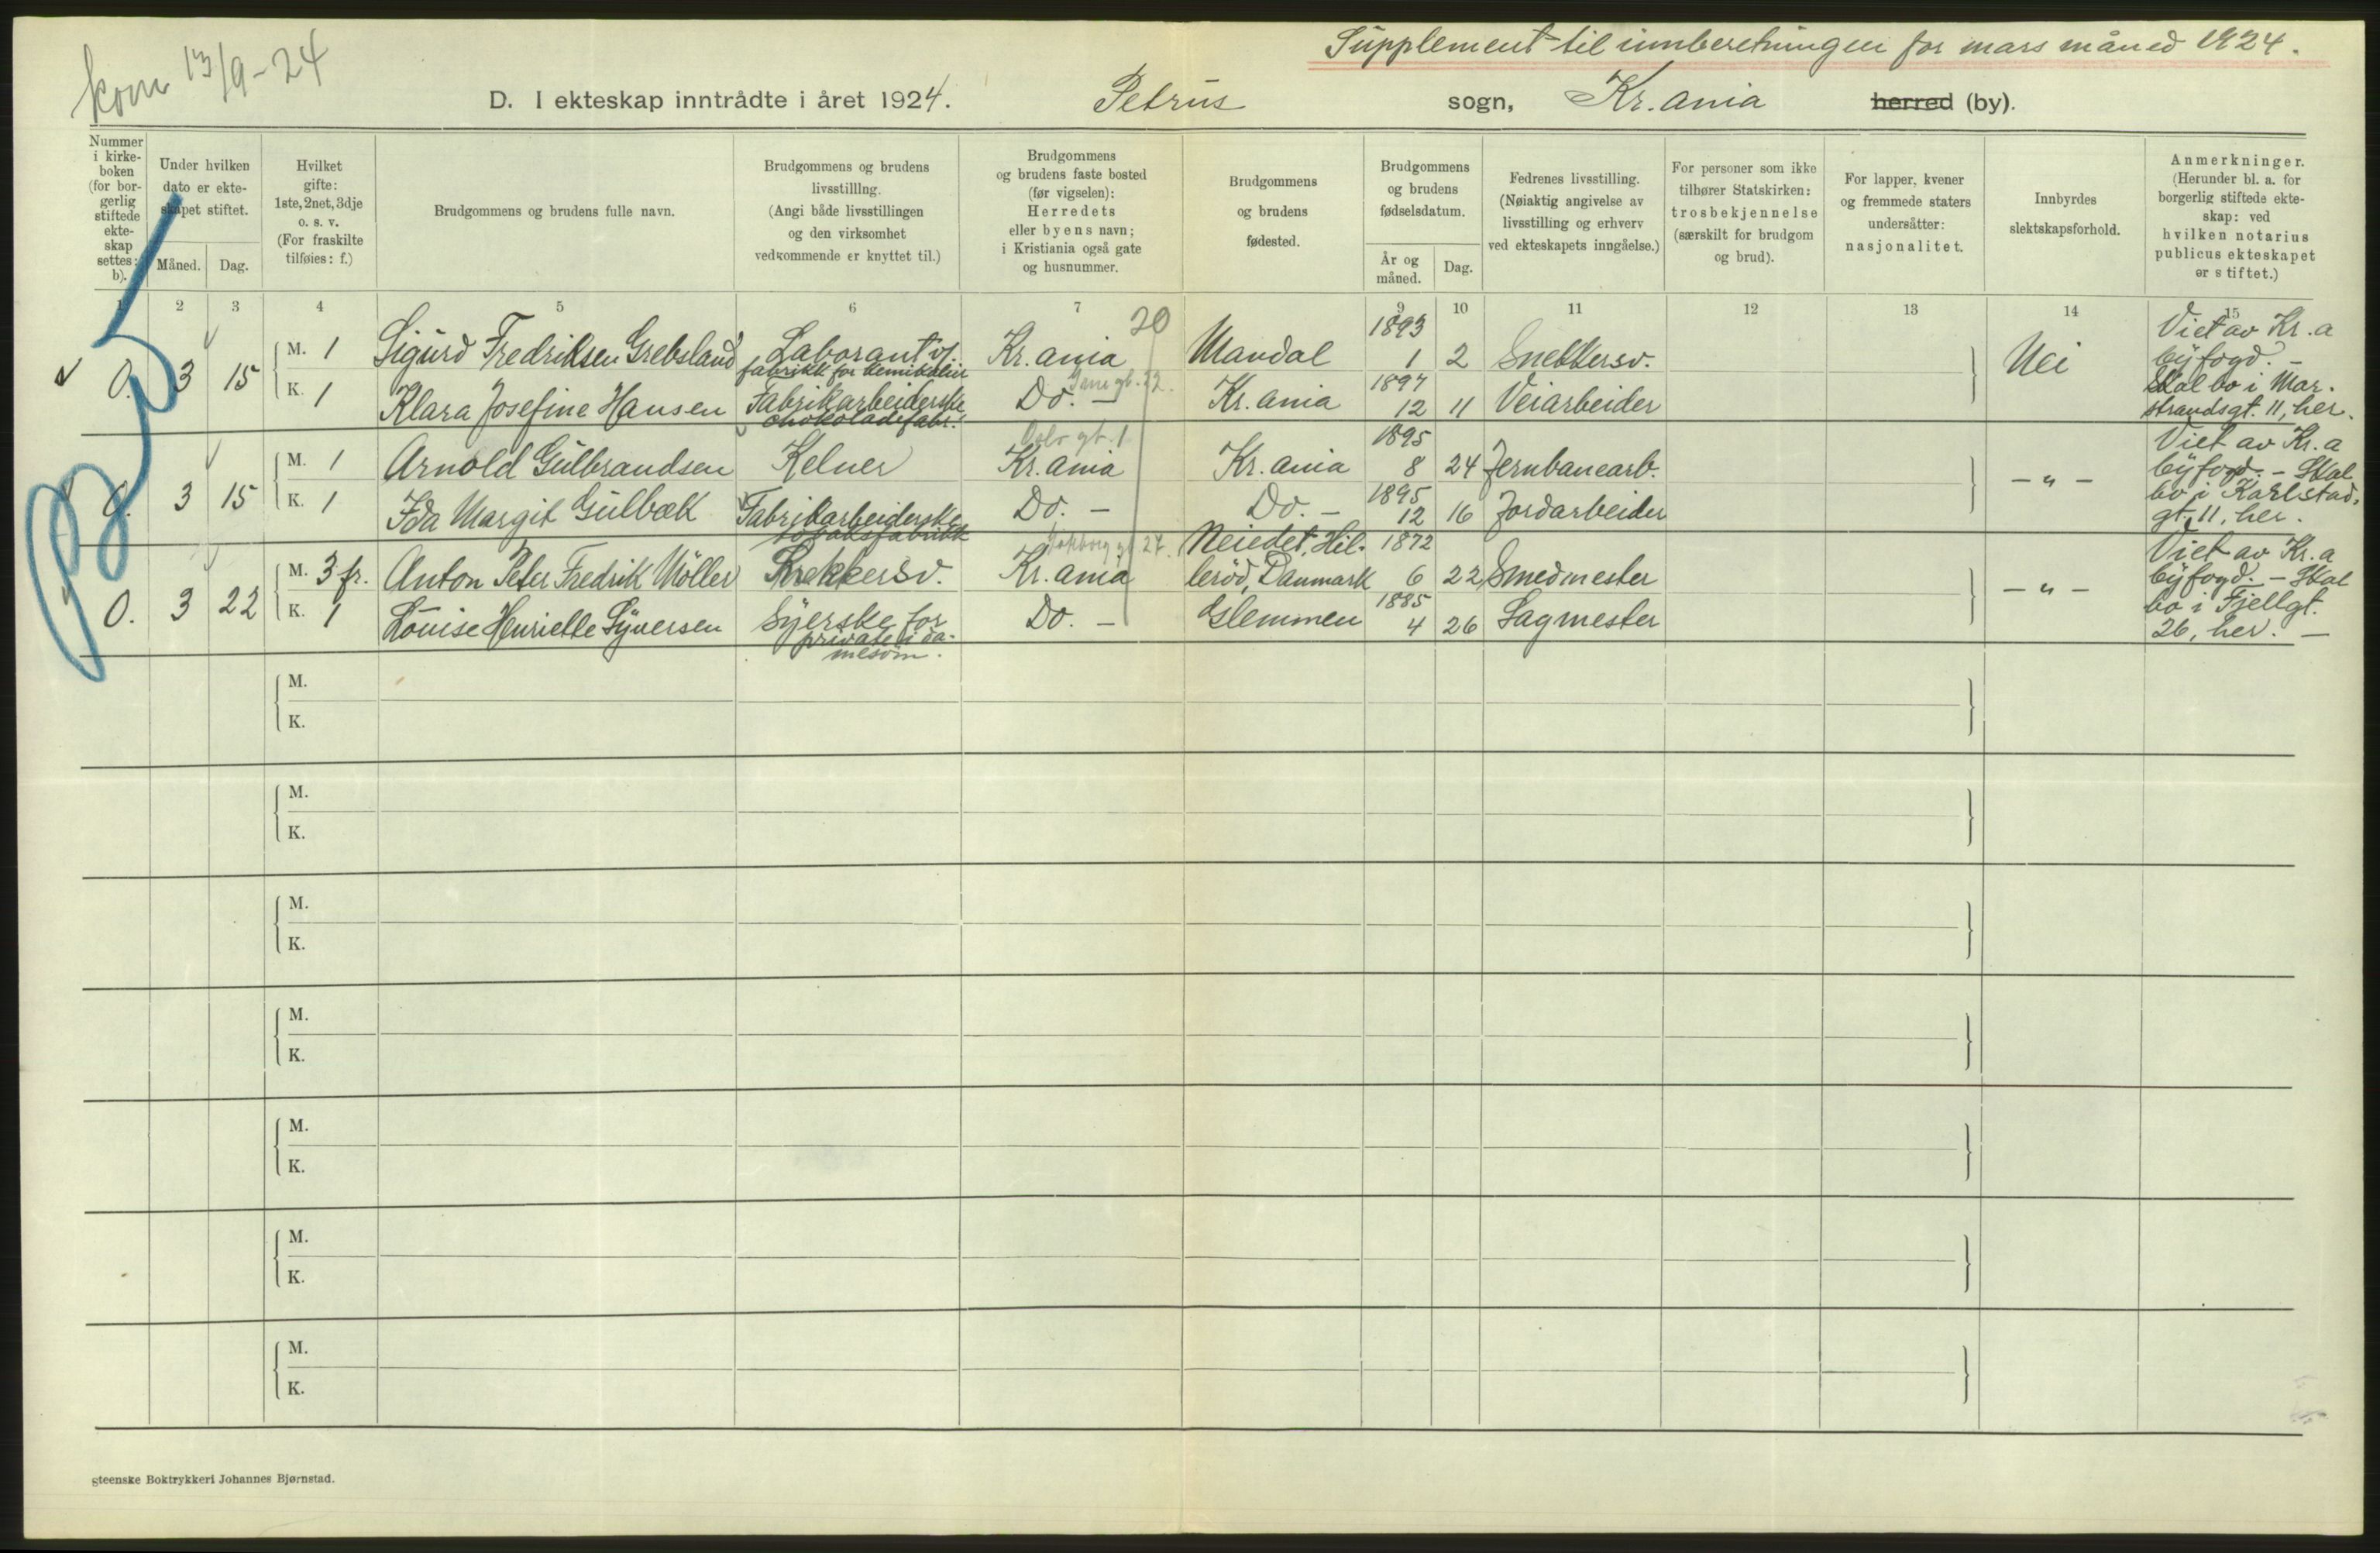 Supplement til innberetningen for mars måned 1924.
kom 13/9-24
D. I ekteskap inntrådte i året 1924. Petrus sogn, Kr.ania herred (by).
Nummer i kirke-boken (for bor-gerlig stiftede ekte-skap settes: b).
Under hvilken dato er ekte-skapet stiftet.
Måned. Dag.
Hvilket gifte: 1ste, 2net, 3dje o. s. v. (For fraskilte tilføies: f.)
Brudgommens og brudens fulle navn.
Brudgommens og brudens livsstilling. (Angi både livsstillingen og den virksomhet vedkommende er knyttet til.)
Brudgommens og brudens faste bosted (før vigselen): Herredets eller byens navn; i Kristiania også gate og husnummer.
Brudgommens og brudens fødested.
Brudgommens og brudens fødselsdatum.
År og måned. Dag.
Fedrenes livsstilling. (Nøiaktig angivelse av livsstilling og erhverv ved ekteskapets inngåelse.)
For personer som ikke tilhører Statskirken: trosbekjennelse (særskilt for brudgom og brud).
For lapper, kvener og fremmede staters undersåtter: nasjonalitet.
Innbyrdes slektskapsforhold.
Anmerkninger. (Herunder bl. a. for borgerlig stiftede ekte-skap: ved hvilken notarius publicus ekteskapet er stiftet.)
1 2 3 4 5 6 7 8 9 10 11 12 13 14 15
20
0. 3 15
M. 1 Sigurd Fredriksen Grebsland Laborant v. fabrikk for kemikalier Kr.ania Mandal 1893 1 2 Snekkersv.
K. 1 Klara Josefine Hansen Fabrikarbeiderske chokoladefabr. Do. - Kr.ania 1897 12 11 Veiarbeider
Nei
Viet av Kr.a
byfogd. -
Skal bo i Mar-
strandsgt. 11, her.
0. 3 15
Oslo gt. 1
M. 1 Arnold Gulbrandsen Kelner Kr.ania Kr.ania 1895 8 24 Jernbanearb.
K. 1 Ida Margit Gulbæk Fabrikarbeiderske tobaksfabrikk Do. - Do. - 1895 12 16 Jordarbeider
- " -
Viet av Kr.a
byfogd. - Skal
bo i Karlstad-
gt. 11, her.
0. 3 22
M. 3 fr. Anton Peter Fredrik Möller Snekkersv. Kr.ania Neiedet, Hil-
leröd, Danmark 1872 6 22 Smedmester
K. 1 Louise Henriette Syversen Syerske for private i da-
mesöm. Do. - Glemmen 1885 4 26 Sagmester
- " -
Viet av Kr.a
byfogd. - Skal
bo i Fjellgt.
26, her. -
M.
K.
M.
K.
M.
K.
M.
K.
M.
K.
M.
K.
M.
K.
gteenske Boktrykkeri Johannes Bjørnstad.